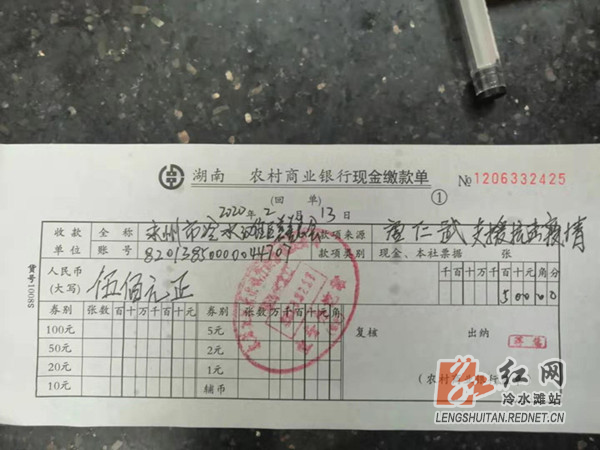 湖南 农村商业银行现金缴款单
№1206332425
(回 单) ①
2020年2月13日
收款单位 全称 永州市冷水滩区慈善会 款项来源 唐仁武支援抗击疫情
账号 82013850000044707 款项类别 现金、本社票据 张
人民币(大写) 伍佰元正 千百十万千百十元角分
50000
券别 张数 万千百十元 券别 张数 万千百十元角
100元 5元 复核 出纳
50元 2元
20元 1元
10元 辅币
货号S8001
红网
冷水滩站
LENGSHUITAN.REDNET.CN